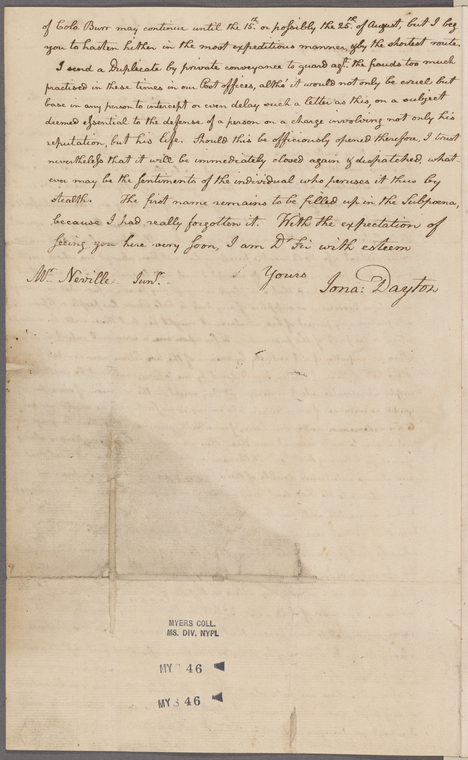 of Colo. Burr may continue until the 15th. or possibly the 25th. of August, but I beg
you to hasten hither in the most expeditious manner, & by the shortest route.
I send a Duplicate by private conveyance to guard agt. the frauds too much
practised in these times in our Post offices, altho' it would not only be cruel but
base in any person to intercept or even delay such a letter as this, on a subject
deemed essential to the defense of a person on a charge involving not only his
reputation, but his life. Should this be officiously opened therefore, I trust
nevertheless that it will be immediately closed again & despatched, what
ever may be the sentiments of the individual who peruses it thus by
stealth. The first name remains to be filled up in the Subpoena,
because I had really forgotten it. With the expectation of
seeing you here very soon, I am Dr. Sir with esteem
Yours
Mr. Neville Junr.
Jona: Dayton
MYERS COLL.
MS. DIV. NYPL
MY 46
MY 46